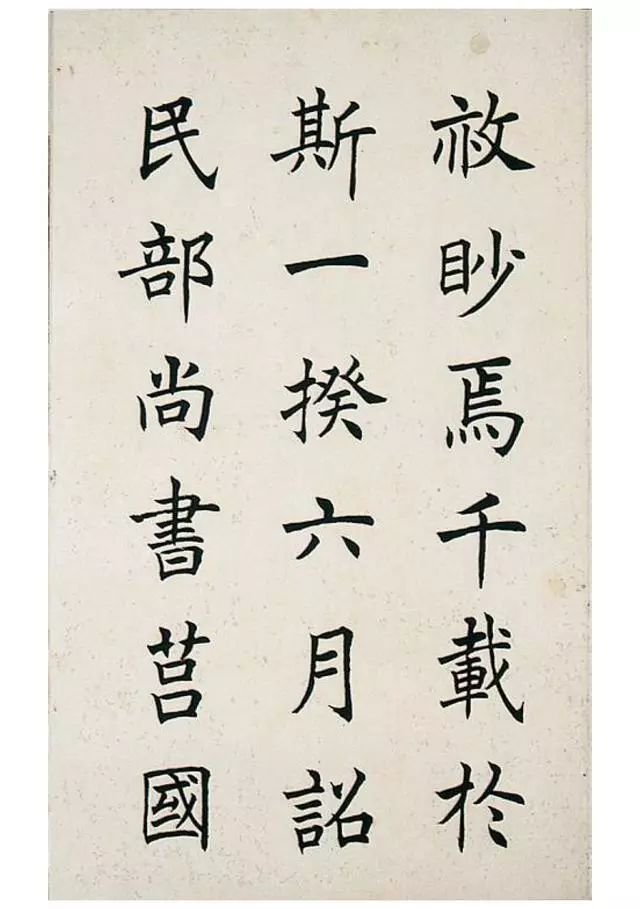 敉眇焉千載於
斯一揆六月詔
民部尚書莒國